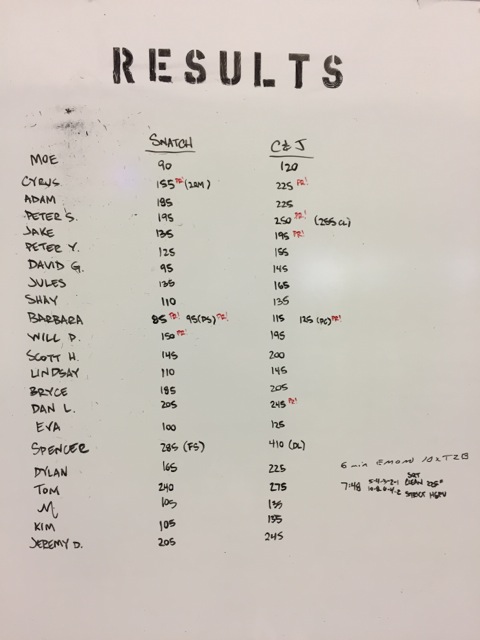 RESULTS
SNATCH C & J
MOE 90 120
CYRUS 155 PR! (2RM) 225 PR!
ADAM 185 225
PETER S. 195 250 PR! (255 CL)
JAKE 135 195 PR!
PETER Y. 125 155
DAVID G. 95 145
JULES 135 165
SHAY 110 135
BARBARA 85 PR! 95(PS) PR! 115 125 (PC) PR!
WILL P. 150 PR! 195
SCOTT H. 145 200
LINDSAY 110 145
BRYCE 185 205
DAN L. 205 245 PR!
EVA 100 125
SPENCER 285 (FS) 410 (DL)
6 min EMOM 10xT2B
DYLAN 165 225
TOM 240 275 7:48 5-4-3-2-1 SQT CLEAN 225#
10-8-6-4-2 STRICT HSPU
M 105 135
KIM 105 135
JEREMY D. 205 245